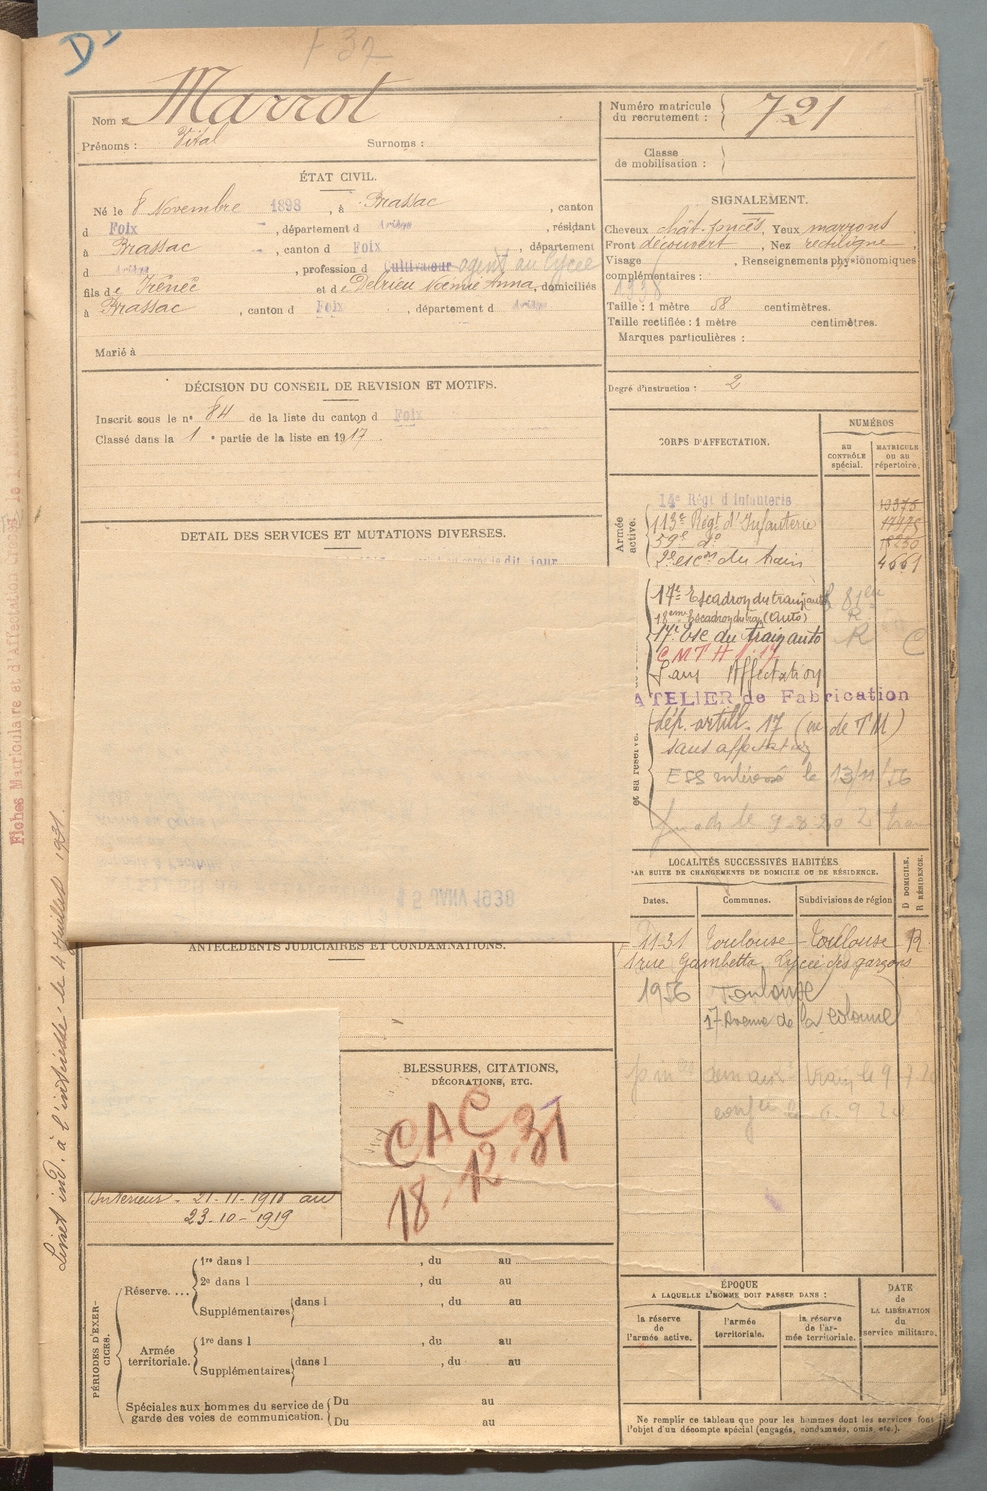 F 32
Marrot
Nom :
Prénoms : Vital Surnoms :
Numéro matricule du recrutement : 721
Classe de mobilisation :
ÉTAT CIVIL.
Né le 8 Novembre 1898, à Brassac, canton
d Foix, département d Ariège, résidant
à Brassac, canton d Foix, département
d Ariège, profession d Cultivateur agent au lycée
fils de Irénée et de Delrieu Noémie Anna, domiciliés
à Brassac, canton d Foix, département d Ariège
Marié à
SIGNALEMENT.
Cheveux chât. foncés Yeux marrons
Front découvert, Nez rectiligne
Visage , Renseignements physionomiques
complémentaires :
1938
Taille : 1 mètre 58 centimètres.
Taille rectifiée : 1 mètre centimètres.
Marques particulières :
Degré d'instruction : 2
DÉCISION DU CONSEIL DE REVISION ET MOTIFS.
Inscrit sous le n° 84 de la liste du canton d Foix
Classé dans la 1 e partie de la liste en 1917.
DETAIL DES SERVICES ET MUTATIONS DIVERSES.
dit jour
CORPS D'AFFECTATION.
NUMÉROS
AU CONTRÔLE spécial.
MATRICULE ou au répertoire.
Armée active.
14e Régt d'Infanterie 13375
113e Régt d'Infanterie 17475
59e do 18250
2e escon du train 4661
et sa réserve.
17e Escadron du train auto
18ème Escadron du train (auto) R
17e Esc du train auto R C
CMTH 17
Sans Affectation
ATELIER de Fabrication
dép. artill. 17 (ou de TM)
sans affectation
le 13/11/56
15 JANV 1938
LOCALITÉS SUCCESSIVES HABITÉES
PAR SUITE DE CHANGEMENTS DE DOMICILE OU DE RÉSIDENCE.
D DOMICILE.
R RÉSIDENCE.
Dates. Communes. Subdivisions de région
11-31 Toulouse Toulouse R
1 rue Gambetta, Lycée des garçons
1956 Toulouse
17 Avenue de la Colonne
ANTÉCÉDENTS JUDICIAIRES ET CONDAMNATIONS.
BLESSURES, CITATIONS,
DÉCORATIONS, ETC.
CAC
18-12-31
Intérieur - 21-11-1918 au
23-10-1919
PÉRIODES D'EXERCICES.
Réserve.... 1re dans l , du au
2e dans l , du au
Supplémentaires dans l , du au
Armée territoriale. 1re dans l , du au
Supplémentaires dans l , du au
Spéciales aux hommes du service de garde des voies de communication. Du au
Du au
ÉPOQUE
A LAQUELLE L'HOMME DOIT PASSER DANS :
la réserve de l'armée active.
l'armée territoriale.
la réserve de l'armée territoriale.
DATE de LA LIBÉRATION du service militaire.
Ne remplir ce tableau que pour les hommes dont les services font
l'objet d'un décompte spécial (engagés, condamnés, omis, etc.).
Livret ind. à l'intéressé le 4 Juillet 1931.
Fiches Matriculaire et d'Affectation